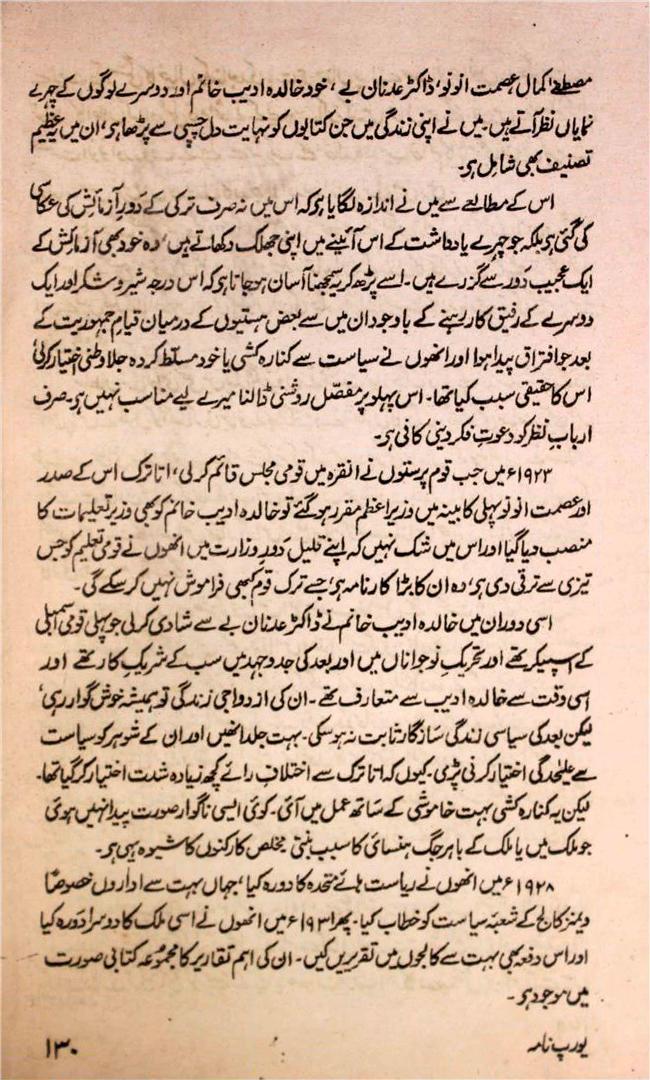 مصطفےٰ کمال، عصمت انونو، ڈاکٹر عدنان بے، خود خالدہ ادیب خانم اور دوسرے لوگوں کے چہرے
نمایاں نظر آتے ہیں۔ میں نے اپنی زندگی میں جن کتابوں کو نہایت دل چسپی سے پڑھا ہو، ان میں یہ عظیم
تصنیف بھی شامل ہو۔
اس کے مطالعے سے میں نے اندازہ لگایا ہو کہ اس میں نہ صرف ترکی کے دَورِ آزمائش کی عکاسی
کی گئی ہو بلکہ جو چہرے یادداشت کے اس آئینے میں اپنی جھلک دکھاتے ہیں، وہ خود بھی آزمائش کے
ایک عجیب دَور سے گزرے ہیں۔ اسے پڑھ کر یہ سمجھنا آسان ہو جاتا ہو کہ اس درجہ شیر و شکر اور ایک
دوسرے کے رفیقِ کار رہنے کے باوجود ان میں سے بعض ہستیوں کے درمیان قیامِ جمہوریت کے
بعد جو افتراق پیدا ہوا اور انھوں نے سیاست سے کنارہ کشی یا خود مسلّط کردہ جلاوطنی اختیار کر لی،
اس کا حقیقی سبب کیا تھا۔ اس پہلو پر مفصّل روشنی ڈالنا میرے لیے مناسب نہیں ہو۔ صرف
اربابِ نظر کو دعوتِ فکر دینی کافی ہو۔
۱۹۲۳ء میں جب قوم پرستوں نے انقرہ میں قومی مجلس قائم کر لی، اتاترک اس کے صدر
اور عصمت انونو پہلی کابینہ میں وزیرِ اعظم مقرر ہو گئے تو خالدہ ادیب خانم کو بھی وزیرِ تعلیمات کا
منصب دیا گیا اور اس میں شک نہیں کہ اپنے قلیل دَورِ وزارت میں انھوں نے قومی تعلیم کو جس
تیزی سے ترقی دی ہو، وہ ان کا بڑا کارنامہ ہو، جسے ترک قوم کبھی فراموش نہیں کر سکے گی۔
اسی دوران میں خالدہ ادیب خانم نے ڈاکٹر عدنان بے سے شادی کر لی جو پہلی قومی اسمبلی
کے اسپیکر تھے اور تحریکِ نوجواناں میں اور بعد کی جدوجہد میں سب کے شریکِ کار تھے اور
اسی وقت سے خالدہ ادیب سے متعارف تھے۔ ان کی ازدواجی زندگی تو ہمیشہ خوش گوار رہی،
لیکن بعد کی سیاسی زندگی سازگار ثابت نہ ہو سکی۔ بہت جلد انھیں اور ان کے شوہر کو سیاست
سے علیٰحدگی اختیار کرنی پڑی۔ کیوں کہ اتاترک سے اختلافِ رائے کچھ زیادہ شدت اختیار کر گیا تھا۔
لیکن یہ کنارہ کشی بہت خاموشی کے ساتھ عمل میں آئی۔ کوئی ایسی ناگوار صورت پیدا نہیں ہوئی
جو ملک میں یا ملک کے باہر جگ ہنسائی کا سبب بنتی۔ مخلص کارکنوں کا شیوہ یہی ہو۔
۱۹۲۸ء میں انھوں نے ریاست ہائے متحدہ کا دورہ کیا، جہاں بہت سے اداروں خصوصًا
ویمنز کالج کے شعبۂ سیاست کو خطاب کیا۔ پھر ۱۹۳۱ء میں انھوں نے اسی ملک کا دوسرا دَورہ کیا
اور اس دفعہ بھی بہت سے کالجوں میں تقریریں کیں۔ ان کی اہم تقاریر کا مجموعہ کتابی صورت
میں موجود ہو۔
یورپ نامہ
۱۳۰